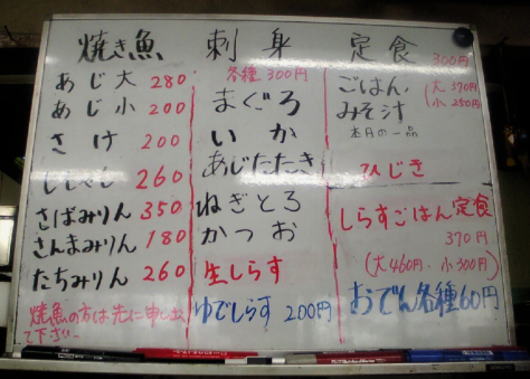 焼き魚
あじ大 280
あじ小 200
さけ 200
ししゃも 260
さばみりん 350
さんまみりん 180
たちみりん 260
焼魚の方は先に申し出
て下さい
刺身
各種300円
まぐろ
いか
あじたたき
ねぎとろ
かつお
生しらす
ゆでしらす 200円
定食 300円
ごはん、
みそ汁
(大370円
小250円)
本日の一品
ひじき
しらすごはん定食
370円
(大460円・小300円)
おでん各種60円